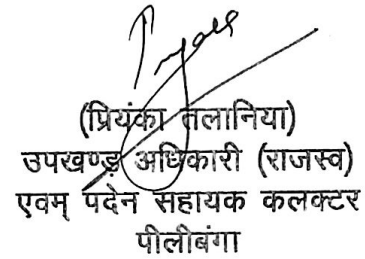 (प्रियंका तलानिया)
उपखण्ड अधिकारी (राजस्व)
एवम् पदेन सहायक कलक्टर
पीलीबंगा